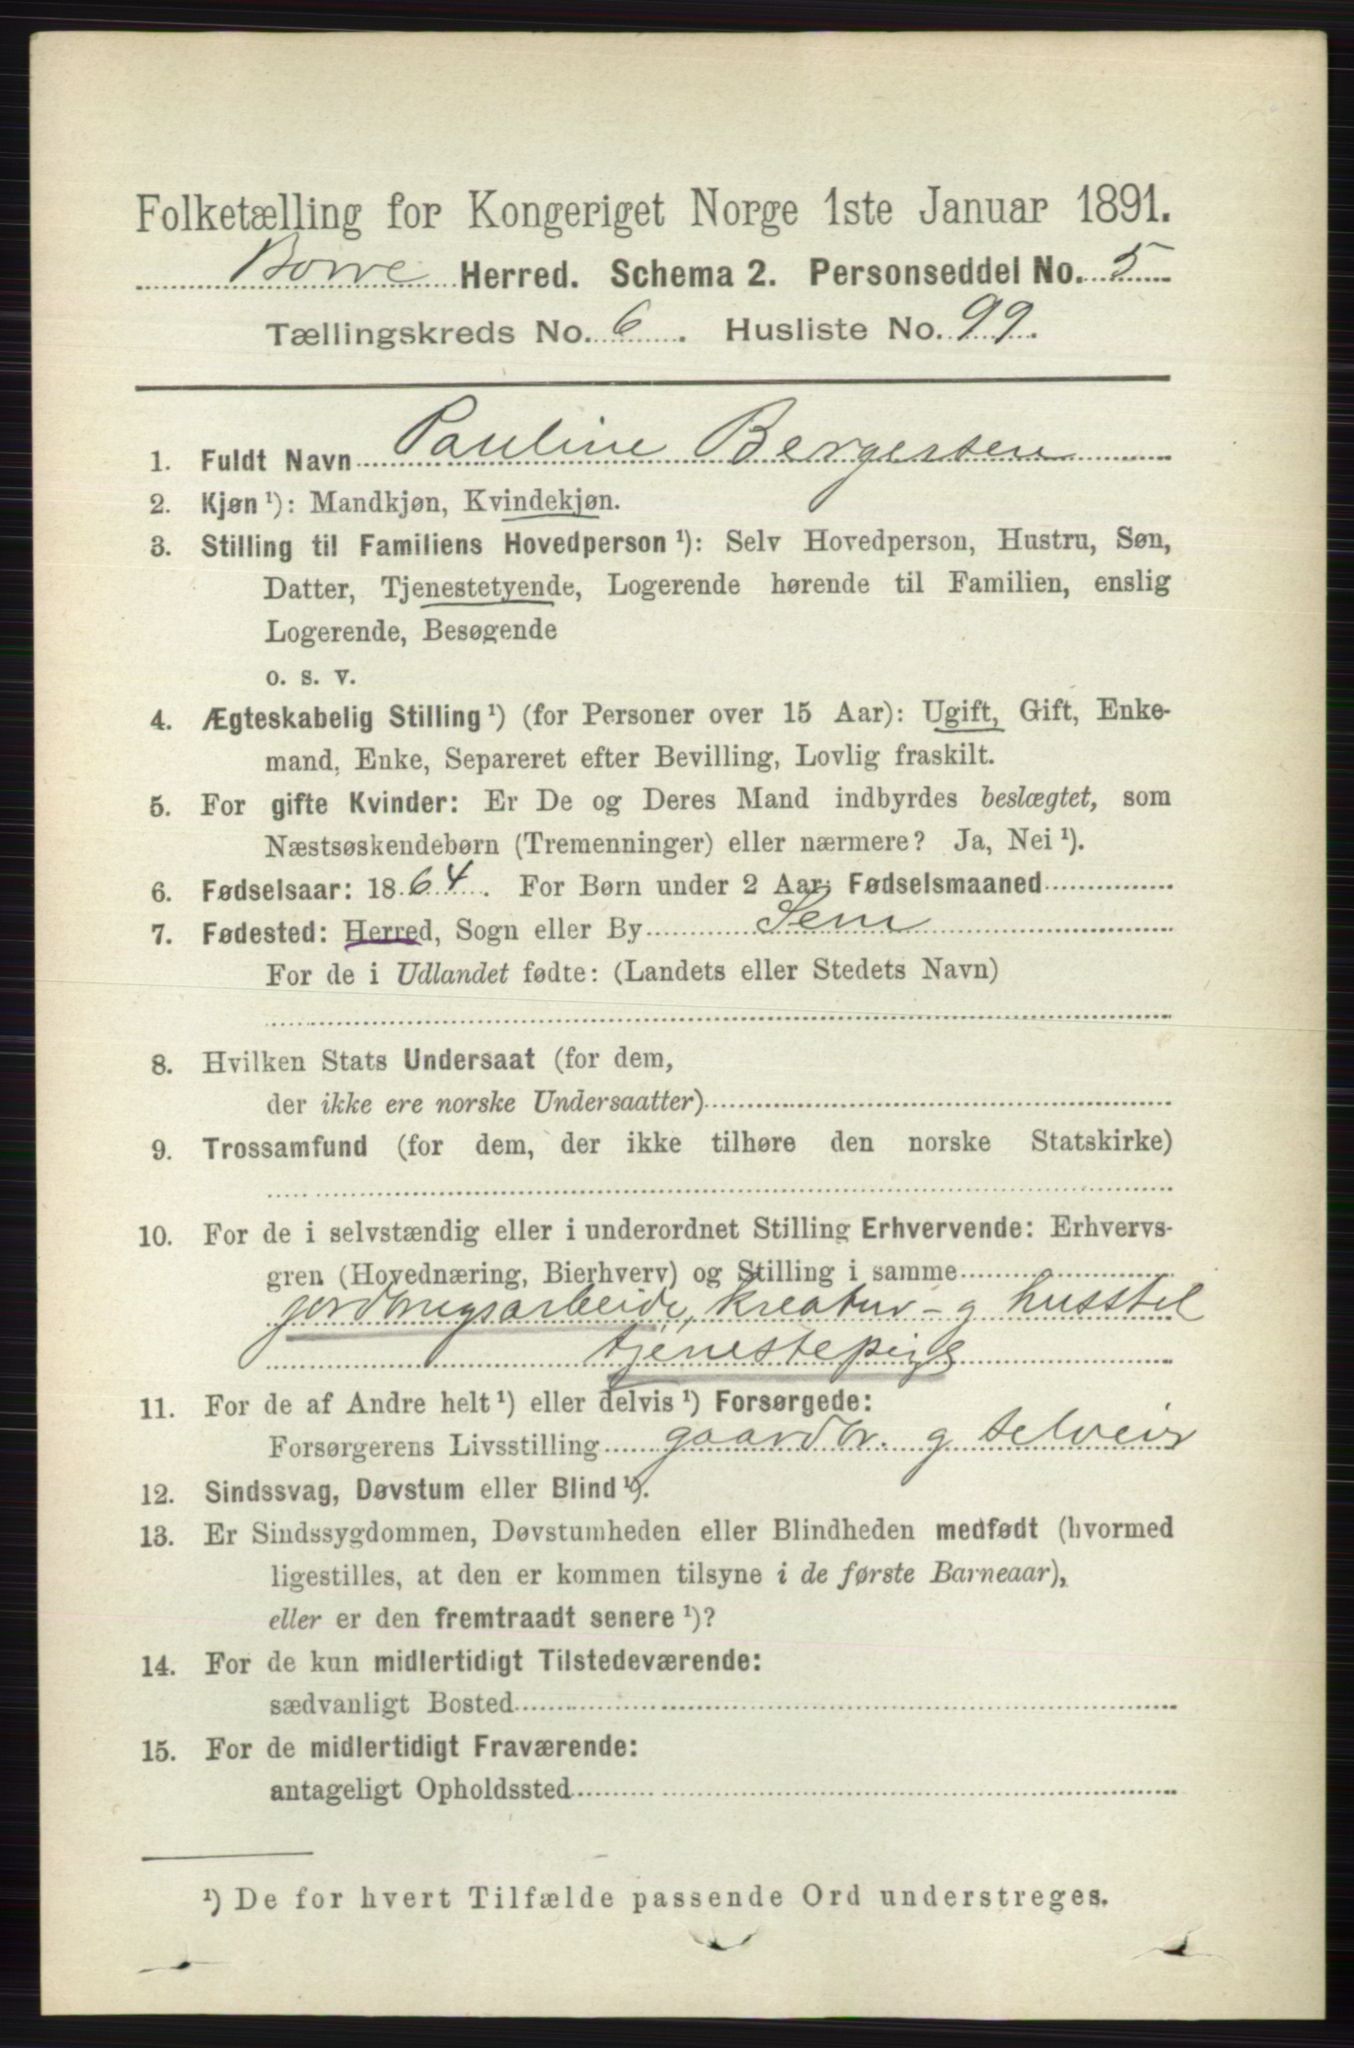 Folketælling for Kongeriget Norge 1ste Januar 1891.
Borre Herred. Schema 2. Personseddel No. 5
Tællingskreds No. 6. Husliste No. 99.
1. Fuldt Navn Pauline Bergersen
2. Kjøn ¹): Mandkjøn, Kvindekjøn.
3. Stilling til Familiens Hovedperson ¹): Selv Hovedperson, Hustru, Søn,
Datter, Tjenestetyende, Logerende hørende til Familien, enslig
Logerende, Besøgende
o. s. v.
4. Ægteskabelig Stilling ¹) (for Personer over 15 Aar): Ugift, Gift, Enke-
mand, Enke, Separeret efter Bevilling, Lovlig fraskilt.
5. For gifte Kvinder: Er De og Deres Mand indbyrdes beslægtet, som
Næstsøskendebørn (Tremenninger) eller nærmere? Ja, Nei ¹).
6. Fødselsaar: 1864. For Børn under 2 Aar: Fødselsmaaned
7. Fødested: Herred, Sogn eller By Sem
For de i Udlandet fødte: (Landets eller Stedets Navn)
8. Hvilken Stats Undersaat (for dem,
der ikke ere norske Undersaatter)
9. Trossamfund (for dem, der ikke tilhøre den norske Statskirke)
10. For de i selvstændig eller i underordnet Stilling Erhvervende: Erhvervs-
gren (Hovednæring, Bierhverv) og Stilling i samme
jordbrugsarbeide, kreatur- g husstel
tjenestepige
11. For de af Andre helt ¹) eller delvis ¹) Forsørgede:
Forsørgerens Livsstilling gaardbr. g selveier
12. Sindssvag, Døvstum eller Blind ¹).
13. Er Sindssygdommen, Døvstumheden eller Blindheden medfødt (hvormed
ligestilles, at den er kommen tilsyne i de første Barneaar),
eller er den fremtraadt senere ¹)?
14. For de kun midlertidigt Tilstedeværende:
sædvanligt Bosted
15. For de midlertidigt Fraværende:
antageligt Opholdssted
¹) De for hvert Tilfælde passende Ord understreges.